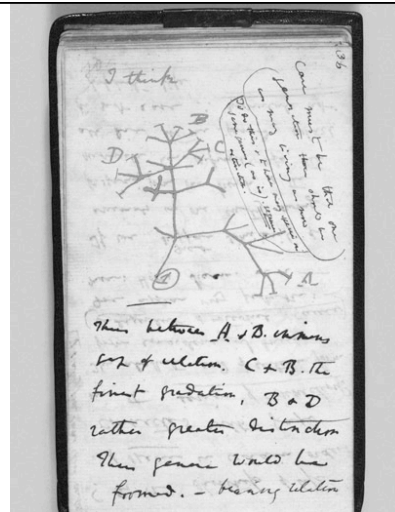 36
I think
Case must be that one
generation then should be
as many living as now
To do this & to have many species in
same genus (as is), requires
extinction
B
D
C
A
1
Thus between A & B. immens
gap of relation. C & B. the
finest gradation, B & D
rather greater distinction
Thus genera would be
formed. — bearing relation